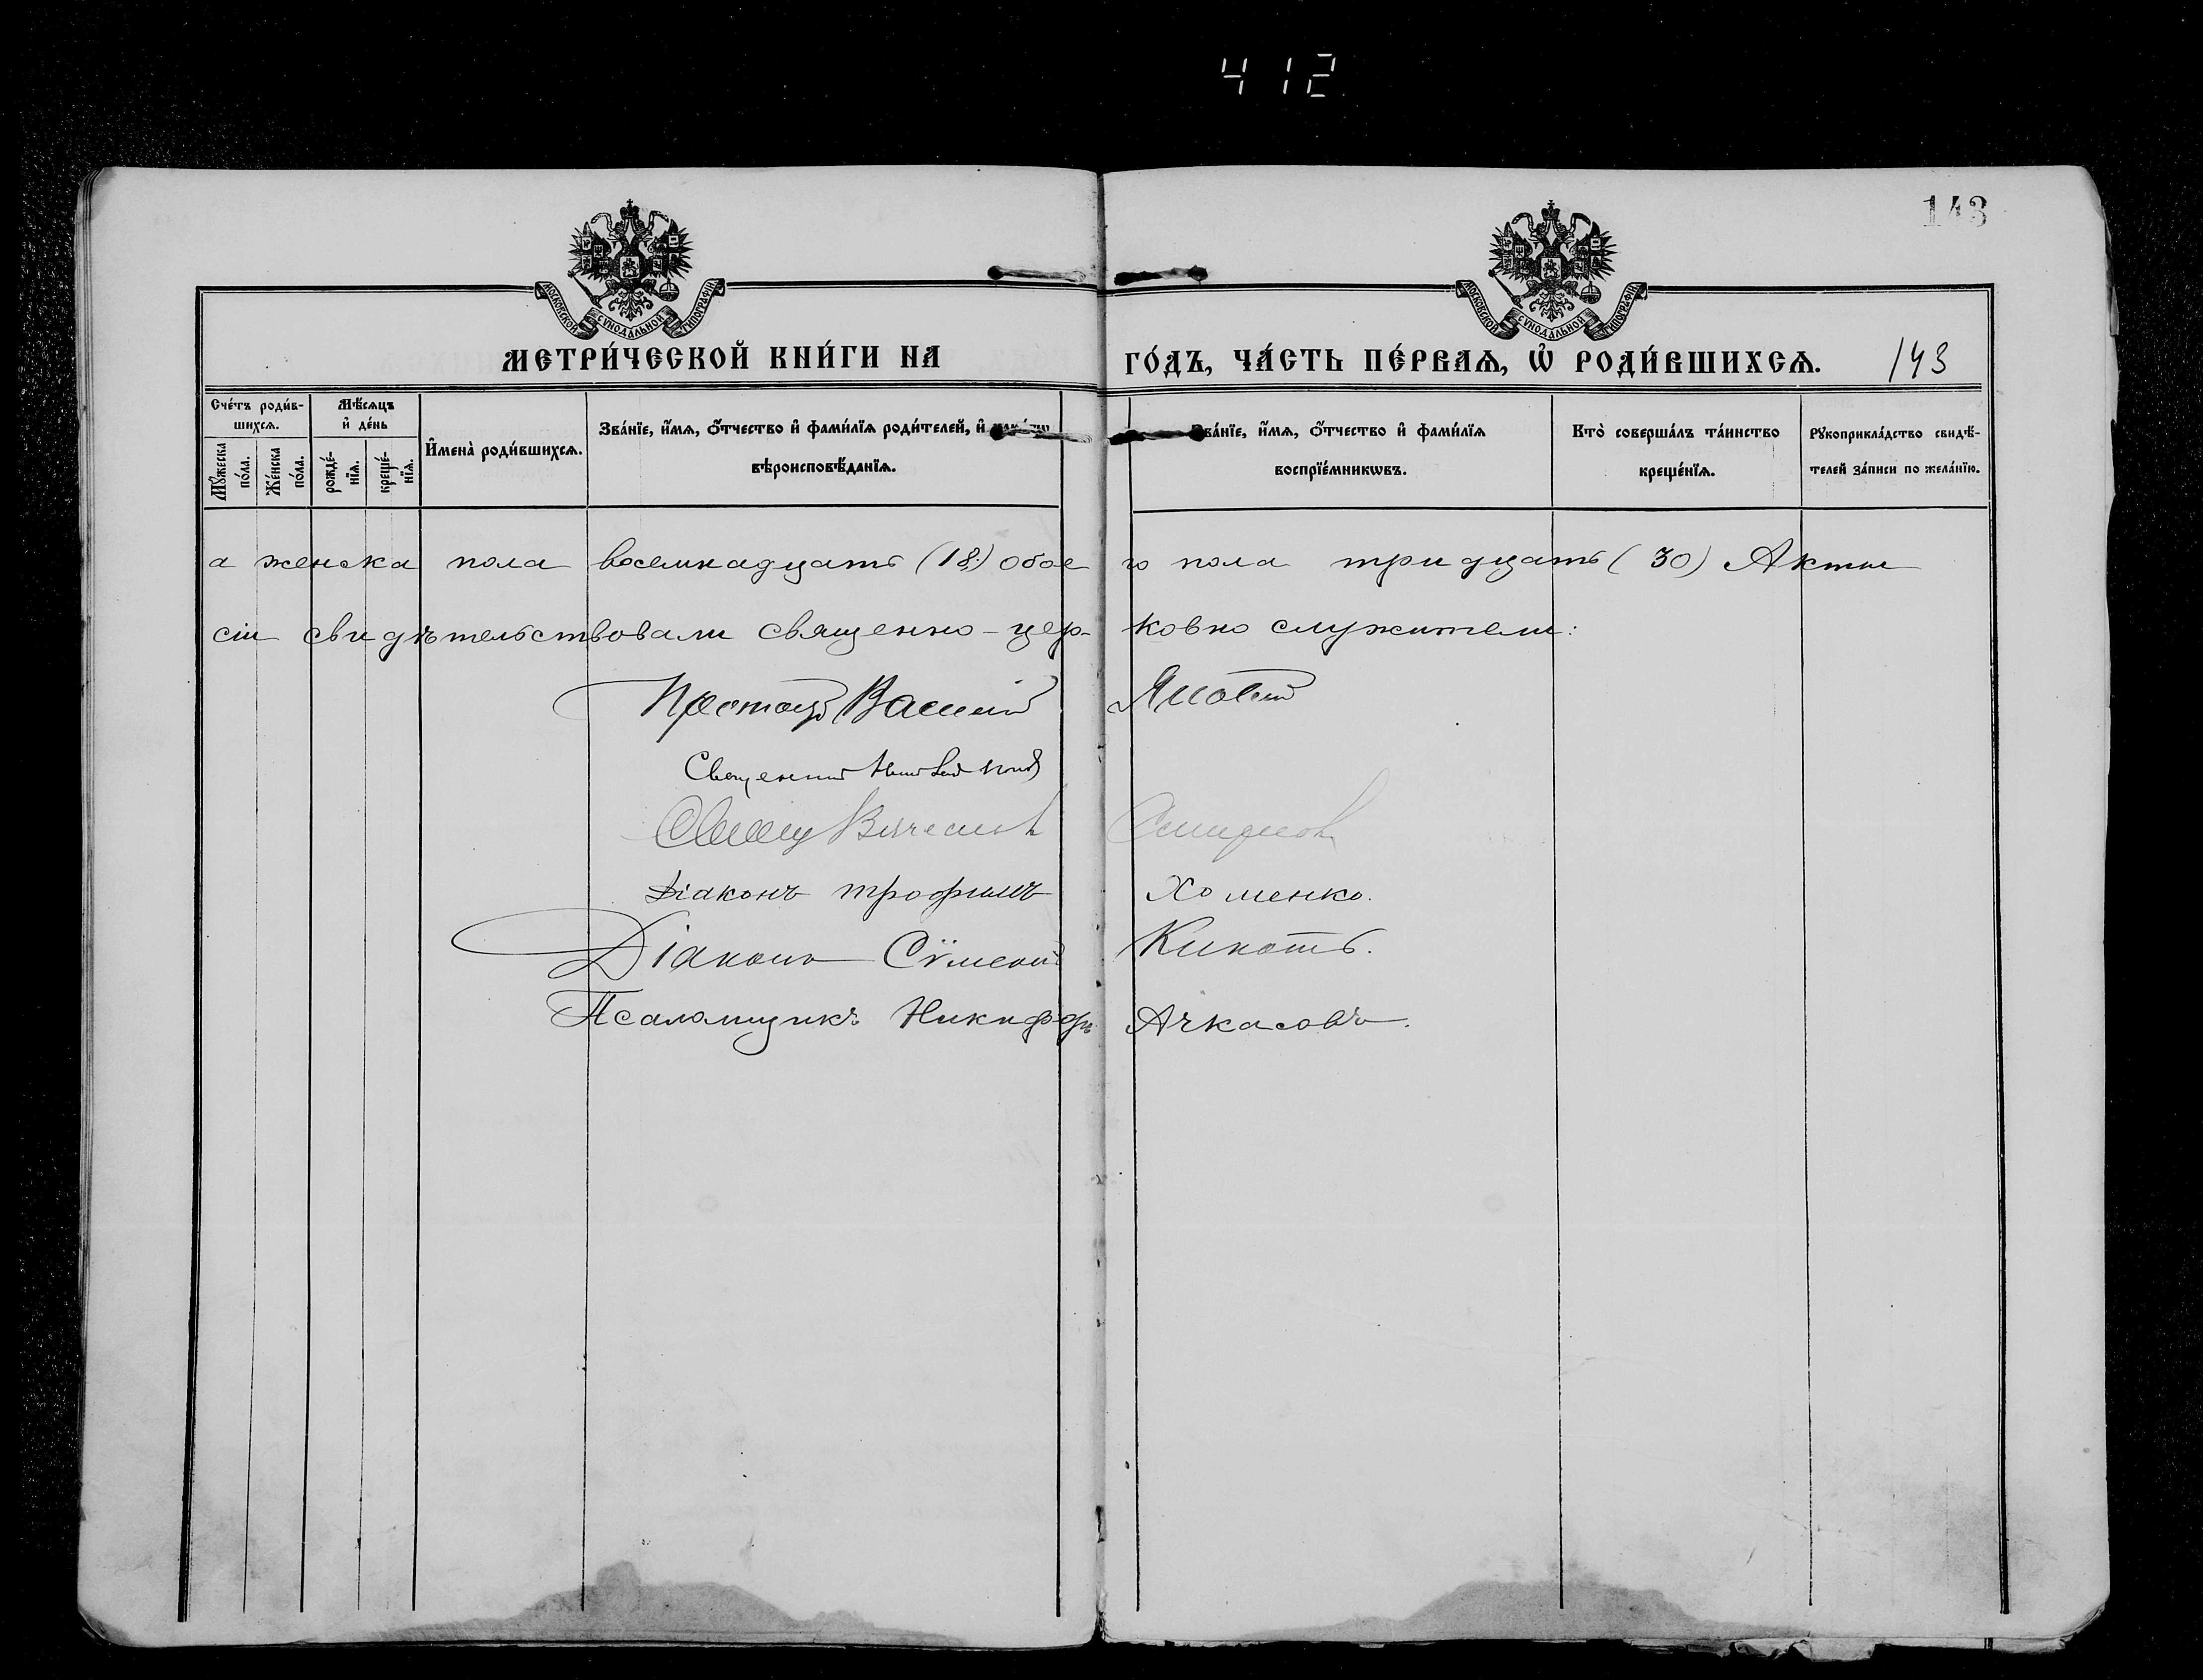 412
143
МОСКОВСКОЙ СУНОДАЛЬНОЙ ТИПОГРАФІИ
МОСКОВСКОЙ СУНОДАЛЬНОЙ ТИПОГРАФІИ
МЕТРИ́ЧЕСКОЙ КНИ́ГИ НА ГО́ДЪ, ЧА́СТЬ ПЕ́РВАѦ, Ѡ҆ РОДИ́ВШИХСѦ. 143
Сче́тъ роди́в-
шихсѧ.
Мꙋ́жеска
по́ла.
Же́нска
по́ла.
Мѣ́сѧцъ
и҆ де́нь
рожде́-
нїѧ.
креще́-
нїѧ.
И҆мена̀ роди́вшихсѧ.
Зва́нїе, и҆́мѧ, ѻ҆́тчество и҆ фами́лїѧ роди́телей, и҆
вѣроисповѣ́данїѧ.
Зва́нїе, и҆́мѧ, ѻ҆́тчество и҆ фами́лїѧ
воспрїе́мникѡвъ.
Кто̀ соверша́лъ та́инство
креще́нїѧ.
Рꙋкоприкла́дство свидѣ́-
телей за́писи по жела́нїю.
а женска пола восемнадцать (18) обоего пола тридцать (30) Акты
сіи свидѣтельствовали священно-церковно служители:
Василій
Священникъ
Свящ Вячеслав
Діаконъ Трофимъ Хоменко.
Діаконъ Сѵмеонъ
Псаломщикъ Никифоръ Ачкасовъ.